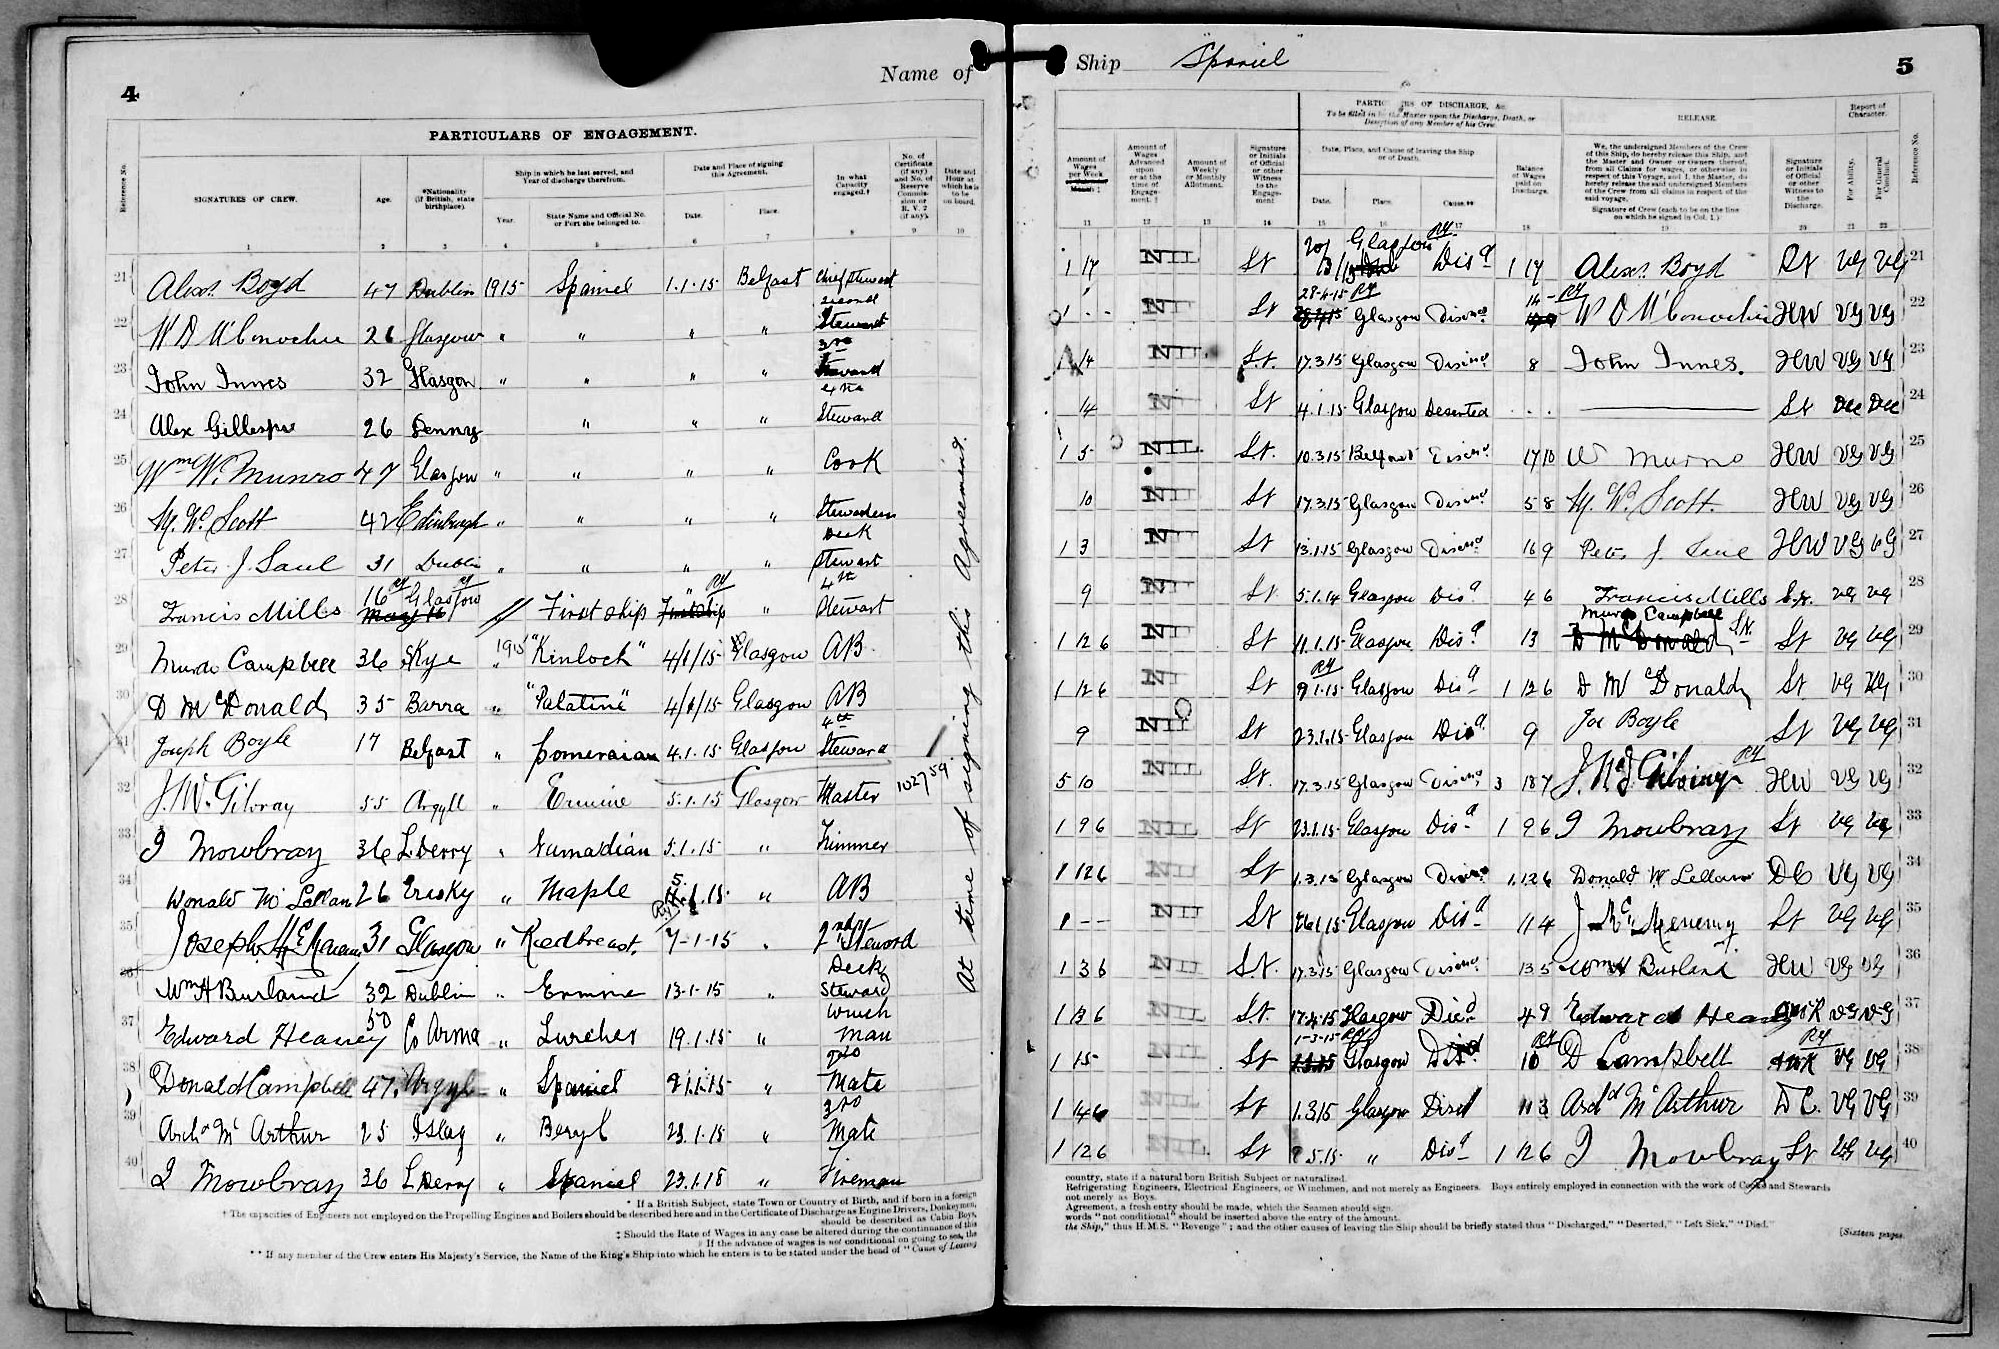 4
Name of
PARTICULARS OF ENGAGEMENT.
Reference No.
SIGNATURES OF CREW.
Age.
*Nationality (if British, state birthplace).
Ship in which he last served, and Year of discharge therefrom.
Year.
State Name and Official No. or Port she belonged to.
Date and Place of signing this Agreement.
Date.
Place.
In what Capacity engaged.†
No. of Certificate (if any) and No. of Reserve Commission or R. V. 2 (if any).
Date and Hour at which he is to be on board.
1 2 3 4 5 6 7 8 9 10
21 Alexr. Boyd 47 Dublin 1915 Spaniel 1.1.15 Belfast Chief Steward
22 W D McConochie 26 Glasgow " " " " second Steward
23 John Innes 32 Glasgow " " " " 3rd Steward
24 Alex Gillespie 26 Denny " " " extra Steward
25 Wm W. Munro 47 Glasgow " " " " Cook
26 M. W. Scott 42 Edinburgh " " " " Stewardess
27 Peter J. Saul 31 Dublin " " " " Deck Stewart
28 Francis Mills 16 Glasgow " First ship " " 4th Stewart
29 Murdo Campbell 36 Skye 1915 "Kinloch" 4/1/15 Glasgow AB.
30 D McDonald 35 Barra " "Palatine" 4/1/15 Glasgow AB
31 Joseph Boyle 17 Belfast " Pomeraian 4.1.15 Glasgow 4th Steward
32 J. McGilvray 55 Argyll " Ermine 5.1.15 Glasgow Master 102759
33 J Mowbray 36 L.Derry " Numadian 5.1.15 " Trimmer
34 Donald McLellan 26 Erisky " Maple 5.1.15 " AB
35 Joseph 31 Glasgow " Redbreast. 7-1-15 " 2nd Steward
36 Wm H Burland 32 Dublin " Ermine 13.1.15 " Deck Steward
37 Edward Heaney 50 Co Arma " Lurcher 19.1.15 " Winch man
38 Donald Campbell 47. Argyle " Spaniel 21.1.15 " 2nd Mate
39 Archd McArthur 25 Islay " Beryl 23.1.15 " 3rd Mate
40 J Mowbray 36 L.Derry " Spaniel 23.1.15 " Fireman
At time of signing this Agreement.
* If a British Subject, state Town or Country of Birth, and if born in a foreign
† The capacities of Engineers not employed on the Propelling Engines and Boilers should be described here and in the Certificate of Discharge as Engine Drivers, Donkeymen,
should be described as Cabin Boys,
‡ Should the Rate of Wages in any case be altered during the continuance of this
If the advance of wages is not conditional on going to sea, the
** If any member of the Crew enters His Majesty's Service, the Name of the King's Ship into which he enters is to be stated under the head of "Cause of Leaving
Ship "Spaniel"
5
PARTICULARS OF DISCHARGE, &c.
To be filled in by the Master upon the Discharge, Death, or Desertion of any Member of his Crew.
RELEASE.
Report of Character.
Amount of Wages per Week
Amount of Wages Advanced upon or at the time of Engagement.
Amount of Weekly or Monthly Allotment.
Signature or Initials of Official or other Witness to the Engagement
Date, Place, and Cause of leaving the Ship or of Death.
Date.
Place.
Cause.**
Balance of Wages paid on Discharge.
We, the undersigned Members of the Crew of this Ship, do hereby release this Ship, and the Master and Owner or Owners thereof, from all Claims for wages, or otherwise in respect of this Voyage, and I, the Master, do hereby release the said undersigned Members of the Crew from all claims in respect of the said voyage.
Signature of Crew (each to be on the line on which he signed in Col. 1.)
Signature or Initials of Official or other Witness to the Discharge.
For Ability.
For General Conduct.
Reference No.
11 12 13 14 15 16 17 18 19 20 21 22
1 17 NIL St Glasgow Disd 1 17 Alexr. Boyd St VG VG 21
1 - - NIL St 28-4-15 Glasgow 14 - W D McConochie HW VG VG 22
14 NIL St. 17.3.15 Glasgow 8 John Innes. HW VG VG 23
14 St 4.1.15 Glasgow Deserted . . . St Dec Dec 24
1 5 NIL St. 10.3.15 Belfast 17 10 W Munro HW VG VG 25
10 NIL St 17.3.15 Glasgow 5 8 M. W. Scott. HW VG VG 26
1 3 NIL St 13.1.15 Glasgow 16 9 Peter J Saul HW VG VG 27
9 NIL St 5.1.14 Glasgow Disd 4 6 Francis Mills VG VG 28
1 12 6 NIL St 11.1.15 Glasgow Disd 13 Murdo Campbell St VG VG 29
1 12 6 NIL St 9.1.15 Glasgow Disd 1 12 6 D McDonald St VG VG 30
9 NIL St 23.1.15 Glasgow Disd 9 Joe Boyle St VG VG 31
5 10 NIL St. 17.3.15 Glasgow 3 18 7 J. McGilvray HW VG VG 32
1 9 6 NIL St 23.1.15 Glasgow Disd 1 9 6 J Mowbray St VG VG 33
1 12 6 NIL St 1.3.15 Glasgow 1.12 6 Donald McLellan DC VG VG 34
1 - - NIL St 26.1.15 Glasgow Disd 11 4 J McMenemy St VG VG 35
1 3 6 NIL St. 17.3.15 Glasgow 13 5 Wm H Burland HW VG VG 36
1 13 6 NIL St. 17.4.15 Glasgow Discd 4 9 Edward Heaney VG VG 37
1 15 - NIL St 1-3-15 Glasgow 10 D Campbell VG VG 38
1 4 6 NIL St 1.3.15 Glasgow Discd 11 3 Archd McArthur DC. VG VG 39
1 12 6 NIL St 5.15 " Disd 1 12 6 J Mowbray St VG VG 40
country, state if a natural born British Subject or naturalized.
Refrigerating Engineers, Electrical Engineers, or Winchmen, and not merely as Engineers. Boys entirely employed in connection with the work of Cooks and Stewards
not merely as Boys.
Agreement, a fresh entry should be made, which the Seamen should sign.
words "not conditional" should be inserted above the entry of the amount.
the Ship," thus H.M.S. "Revenge"; and the other causes of leaving the Ship should be briefly stated thus "Discharged," "Deserted," "Left Sick," "Died."
[Sixteen pages.